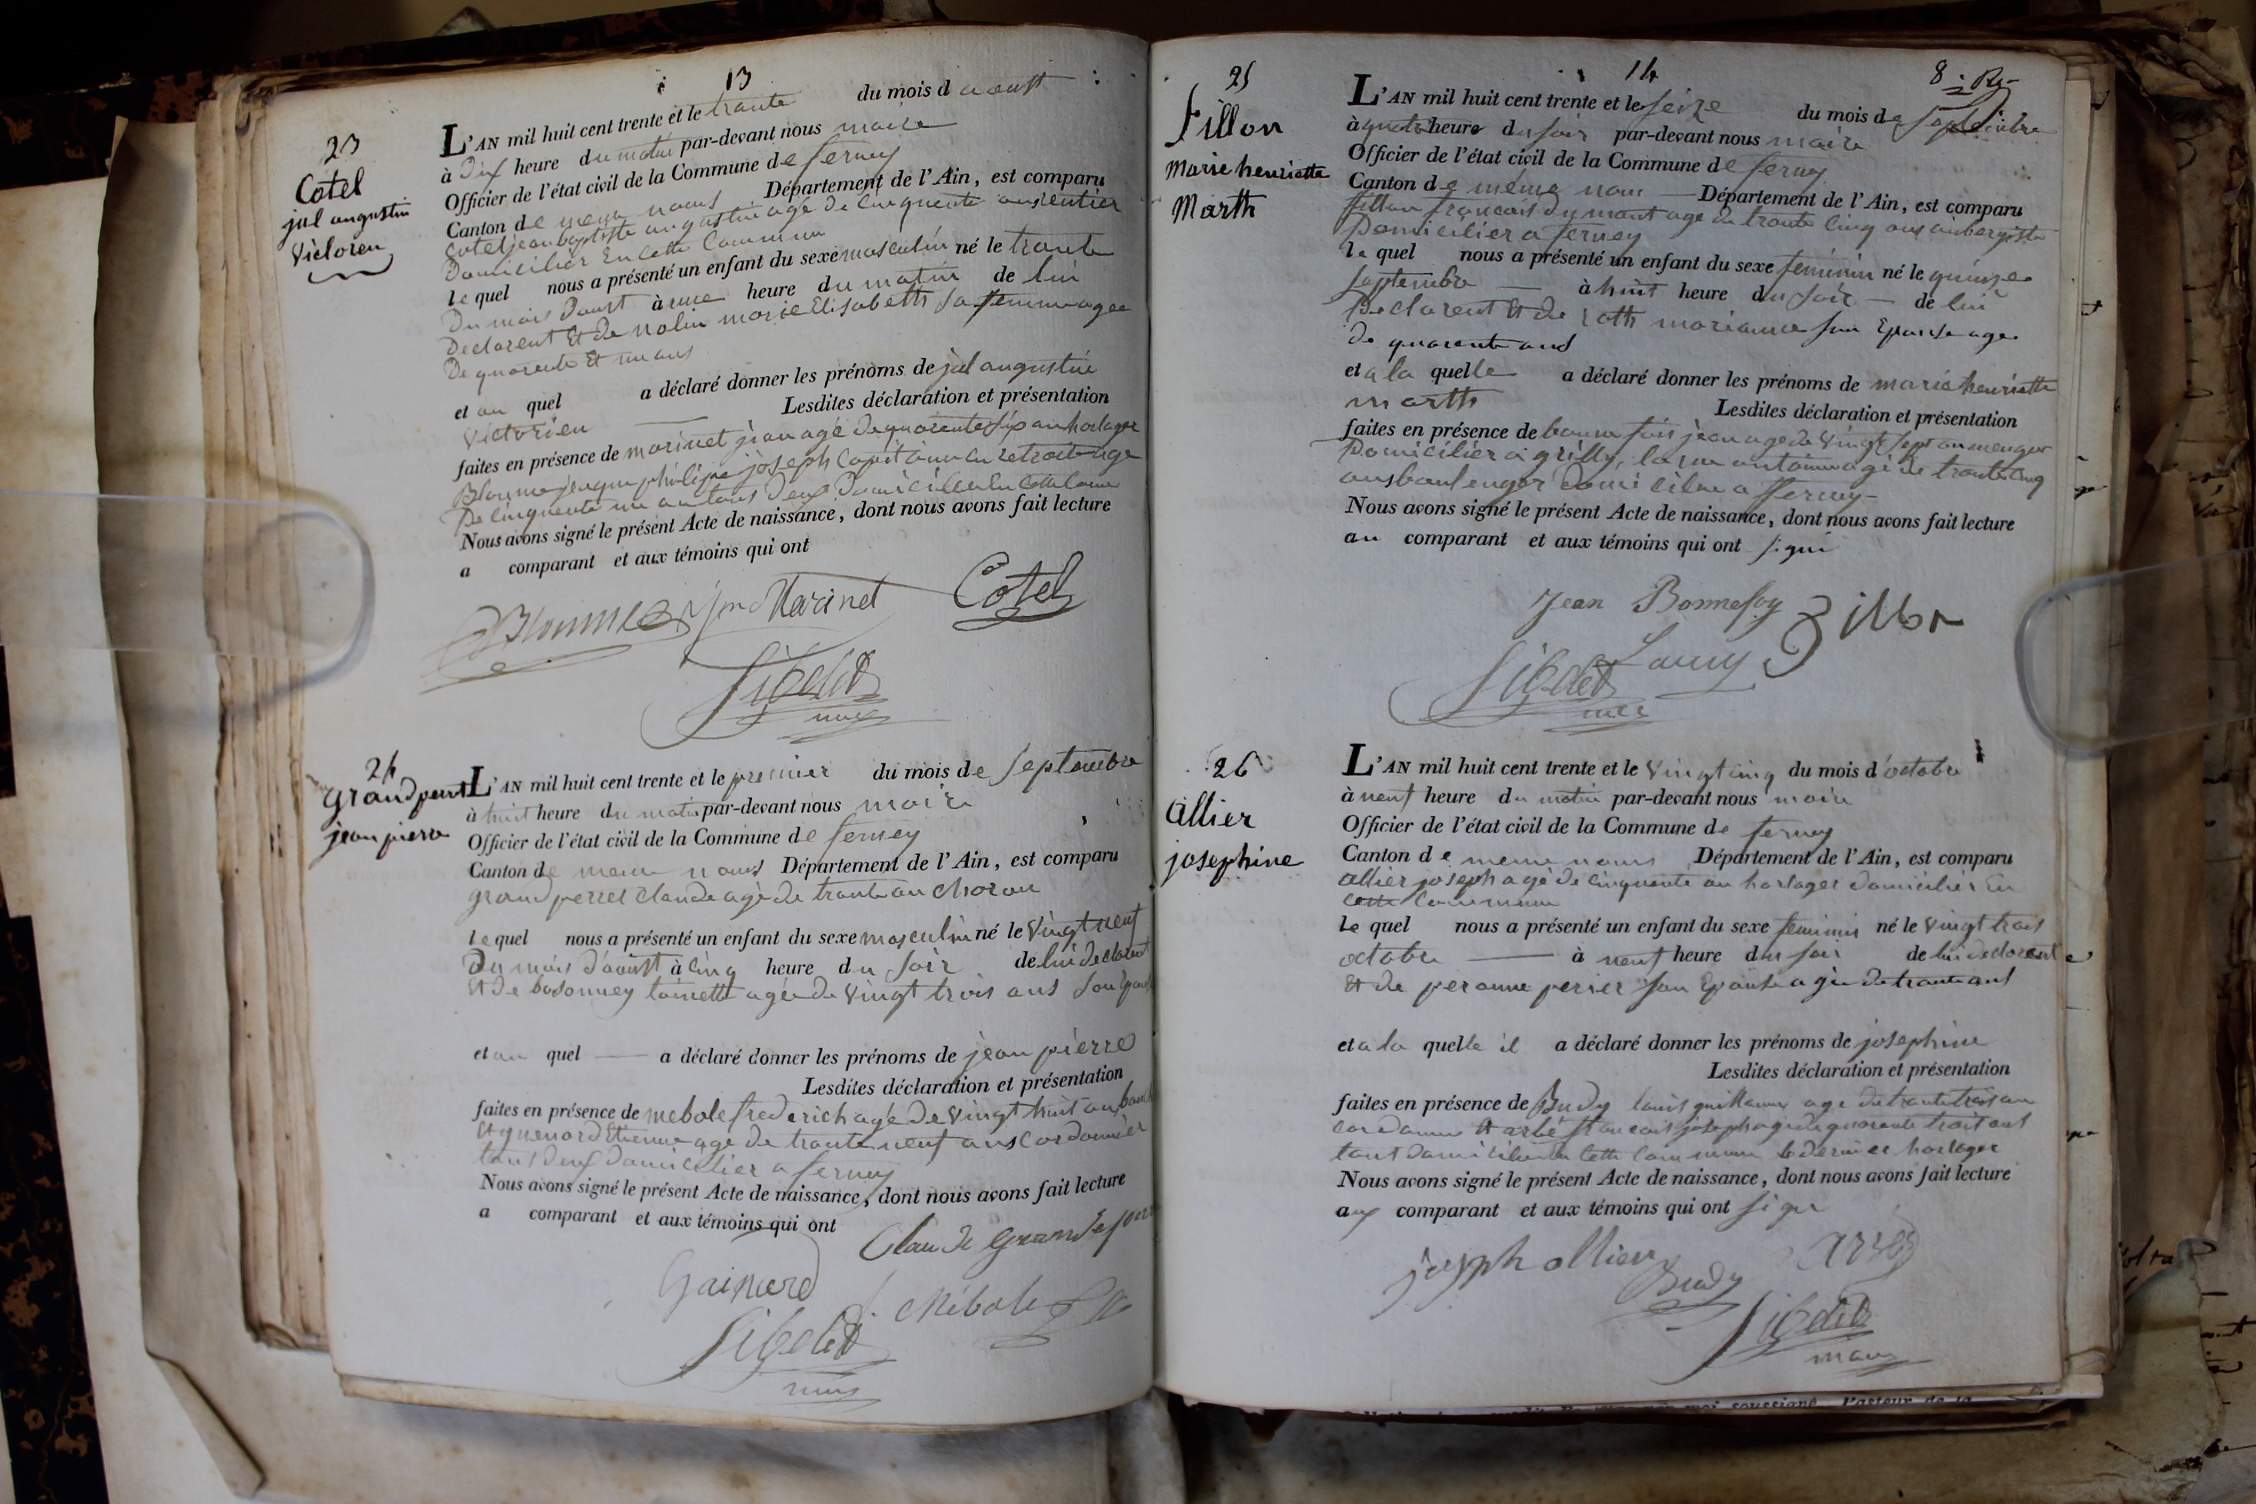 13
23
Cotel
jul augustin
Victoren
L'AN mil huit cent trente et le trante du mois d aoust
à dix heure du matin par-devant nous maire
Officier de l'état civil de la Commune de ferney
Canton de meme noms Département de l'Ain, est comparu
Cotel jean baptiste augustin agé de cinquente ans rentier
Domicilier En cette Commune
le quel nous a présenté un enfant du sexe masculin né le trante
Du mois Daust à une heure du matin de lui
Declarent Et de Nolin marie Elisabeth sa femme agee
De quarente Et un ans
et au quel a déclaré donner les prénoms de jul augustin
Victorien Lesdites déclaration et présentation
faites en présence de marinet jean agé de quarente six an horlager
Blonme jaque philipe joseph Capitainne en retroit age
De cinquente un an tous deux Domicillié En Cette Comune
Nous avons signé le présent Acte de naissance, dont nous avons fait lecture
a comparant et aux témoins qui ont
Jm Marinet Cotel
Sibelet
24
grandperret
jean pierre
L'AN mil huit cent trente et le premier du mois de Septembre
à huit heure du matin par-devant nous maire
Officier de l'état civil de la Commune de ferney
Canton de meme noms Département de l'Ain, est comparu
grand perret Claude agé de trante an Charon
le quel nous a présenté un enfant du sexe masculin né le Vingt neuf
Du mois d'août à Cinq heure du soir de lui declarent
Et De bosonney toinette agée de Vingt trois ans Son Epouse
et au quel a déclaré donner les prénoms de jean pierre
Lesdites déclaration et présentation
faites en présence de mebole frederich agé de Vingt huit an
Et guenard Etienne age de trante neuf ans Cordonnier
tous deux domicilier a ferney
Nous avons signé le présent Acte de naissance, dont nous avons fait lecture
a comparant et aux témoins qui ont
Claude
Gainard
Mebole
Sibelet
14
8
25
fillon
Marie henriette
Marth
L'AN mil huit cent trente et le seize du mois de Septembre
à quatre heure du soir par-devant nous maire
Officier de l'état civil de la Commune de ferney
Canton de méme nom Département de l'Ain, est comparu
fillon francois dumont age de trante Cinq ans aubergiste
Domicilier a ferney
le quel nous a présenté un enfant du sexe feminin né le quinze
Septembre à huit heure du soir de lui
Declarent Et de roth marianne son Epouse age
de quarente ans
et a la quelle a déclaré donner les prénoms de marie henriette
marth Lesdites déclaration et présentation
faites en présence de jean age de Vingt Sept an
Domicilier a grilly, antoinne agé de trante cinq
ans boulenger Domicilier a fferney
Nous avons signé le présent Acte de naissance, dont nous avons fait lecture
au comparant et aux témoins qui ont signé
Jean Bonnefoy Fillon
Sibelet
26
allier
josephine
L'AN mil huit cent trente et le Vingt cinq du mois d'octobre
à neuf heure du matin par-devant nous maire
Officier de l'état civil de la Commune de ferney
Canton de meme noms Département de l'Ain, est comparu
allier joseph agé de cinquente an horlager domicilier En
cette Commune
le quel nous a présenté un enfant du sexe feminin né le vingt trois
octobre à neuf heure du soir de lui declarent
Et de peronne perier son Epouse agée de trante ans
et a la quelle il a déclaré donner les prénoms de josephine
Lesdites déclaration et présentation
faites en présence de Budy louis guillaume age de trante trois an
cordonnier Et arbé francois joseph agé de quarente troit ans
tout domicilier En Cette Commune le dernier horlager
Nous avons signé le présent Acte de naissance, dont nous avons fait lecture
aux comparant et aux témoins qui ont signé
joseph allier
Budy
Sibelet
maire
moi soussigné, Pasteur de la